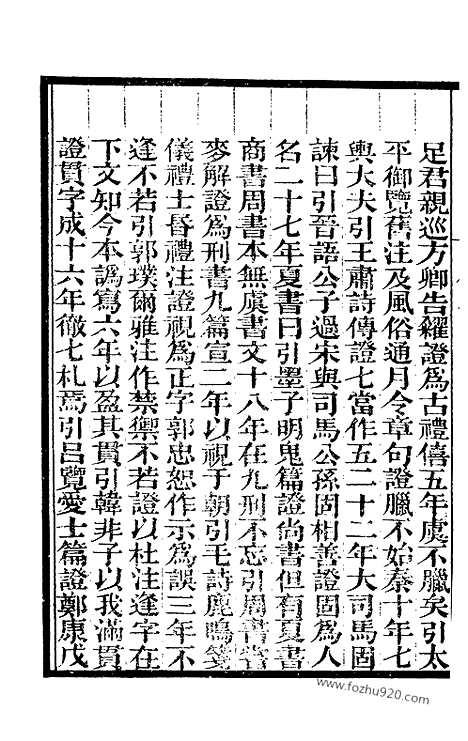 足君親巡方卿告糴證爲古禮僖五年虞不臘矣引太
平御覽舊注及風俗通月令章句證臘不始秦十年七
輿大夫引王肅詩傳證七當作五二十二年大司馬固
諫曰引晉語公子過宋與司馬公孫固相善證固爲人
名二十七年夏書曰引墨子明鬼篇證尚書但有夏書
商書周書本無虞書文十八年在九刑不忘引周書嘗
麥解證爲刑書九篇宣二年以視于朝引毛詩鹿鳴箋
儀禮士昏禮注證視爲正字郭忠恕作示爲誤三年不
逢不若引郭璞爾雅注作禁禦不若證以杜注逢字在
下文知今本譌寫六年以盈其貫引韓非子以我滿貫
證貫字成十六年徹七札焉引呂覽愛士篇證鄭康戊
www.fozhu920.com